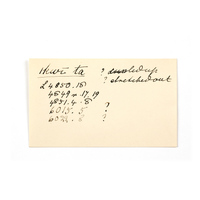 Huri ta ? doubled up
? stretched out
L 4850.15
4549 = 17.19
4851.4-5 ?
6015.5 ?
6072.2 ?